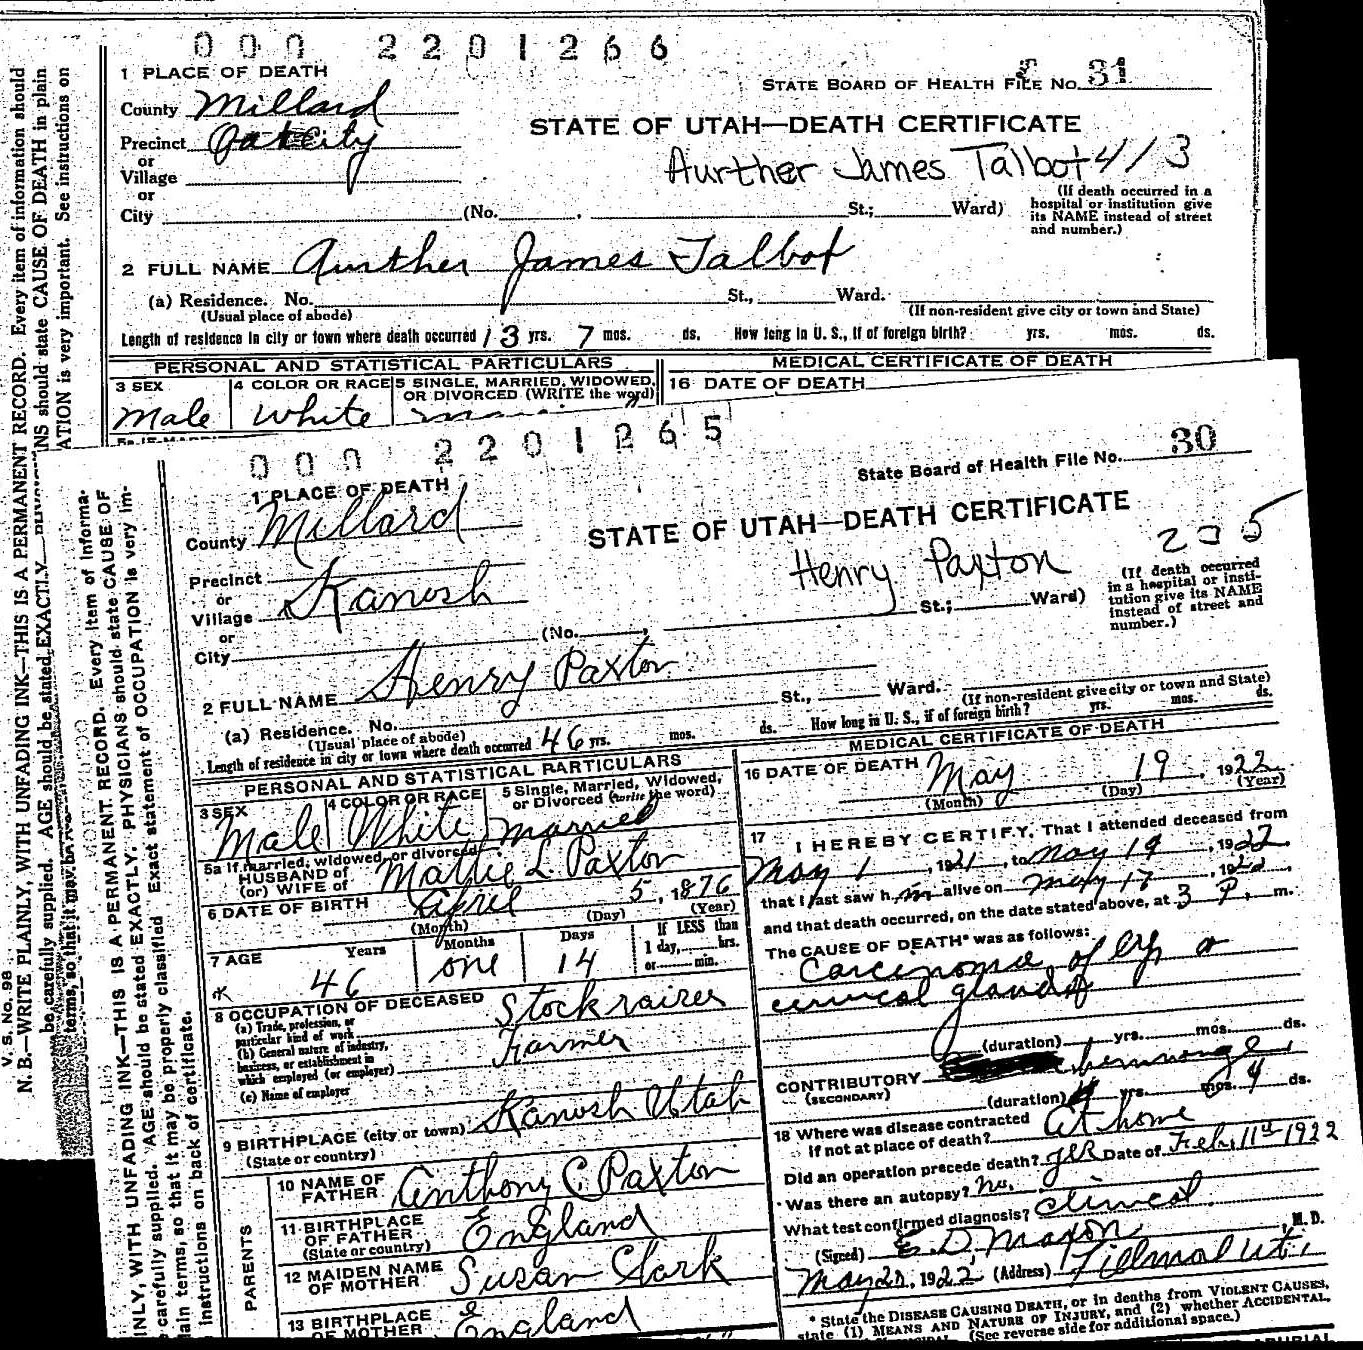 0 0 0 2 2 0 1 2 6 6
1 PLACE OF DEATH
STATE BOARD OF HEALTH FILE No. 31
County Millard
STATE OF UTAH—DEATH CERTIFICATE
Precinct Oak City
Aurther James Talbot 4/3
or
Village
or
City (No. , St.; Ward)
(If death occurred in a
hospital or institution give
its NAME instead of street
and number.)
2 FULL NAME Aurther James Talbot
(a) Residence. No. St., Ward.
(Usual place of abode)
(If non-resident give city or town and State)
Length of residence in city or town where death occurred 13 yrs. 7 mos. ds. How long in U. S., if of foreign birth? yrs. mos. ds.
PERSONAL AND STATISTICAL PARTICULARS
MEDICAL CERTIFICATE OF DEATH
3 SEX
Male
4 COLOR OR RACE
White
5 SINGLE, MARRIED, WIDOWED,
OR DIVORCED (WRITE the word)
16 DATE OF DEATH
V. S. No. 98
N. B.—WRITE PLAINLY, WITH UNFADING INK—THIS IS A PERMANENT RECORD. Every item of information should
be carefully supplied. AGE should be stated EXACTLY.
NS should state CAUSE OF DEATH in plain
terms, so that it may be
ATION is very important. See instructions on
0 0 0 2 2 0 1 2 6 5
State Board of Health File No. 30
1 PLACE OF DEATH
County Millard
STATE OF UTAH—DEATH CERTIFICATE
205
Henry Paxton
Precinct
or
Village Kanosh
or
City (No. , St.; Ward)
(If death occurred
in a hospital or insti-
tution give its NAME
instead of street and
number.)
2 FULL NAME Henry Paxton
(a) Residence. No. St., Ward.
(Usual place of abode)
(If non-resident give city or town and State)
Length of residence in city or town where death occurred 46 yrs. mos. ds. How long in U. S., if of foreign birth? yrs. mos. ds.
PERSONAL AND STATISTICAL PARTICULARS
3 SEX
Male
4 COLOR OR RACE
White
5 Single, Married, Widowed,
or Divorced (write the word)
married
5a If married, widowed, or divorced
HUSBAND of
(or) WIFE of
Mattie L. Paxton
6 DATE OF BIRTH April 5, 1876
(Month) (Day) (Year)
7 AGE Years Months Days If LESS than
1 day, hrs.
or min.
46 one 14
8 OCCUPATION OF DECEASED
(a) Trade, profession, or
particular kind of work
Stockraiser
(b) General nature of industry,
business, or establishment in
which employed (or employer)
Farmer
(c) Name of employer
9 BIRTHPLACE (city or town) Kanosh Utah
(State or country)
PARENTS
10 NAME OF
FATHER
Anthony C. Paxton
11 BIRTHPLACE
OF FATHER
(State or country)
England
12 MAIDEN NAME
OF MOTHER
Susan Clark
13 BIRTHPLACE
OF MOTHER
England
MEDICAL CERTIFICATE OF DEATH
16 DATE OF DEATH May 19, 1922
(Month) (Day) (Year)
17 I HEREBY CERTIFY, That I attended deceased from
May 1, 1921, to May 19, 1922,
that I last saw him alive on May 17, 1922,
and that death occurred, on the date stated above, at 3 P. m.
The CAUSE OF DEATH* was as follows:
Carcinoma of lip &
cervical glands
(duration) yrs. mos. ds.
CONTRIBUTORY hemorrage,
(SECONDARY)
(duration) yrs. mos. 4 ds.
18 Where was disease contracted
if not at place of death?
At home
Did an operation precede death? yes Date of Feb. 11th 1922
Was there an autopsy? no.
What test confirmed diagnosis? clinical
(Signed) E. D. Maxon, M. D.
, 1922 (Address) Fillmore Ut.
* State the DISEASE CAUSING DEATH, or in deaths from VIOLENT CAUSES,
state (1) MEANS AND NATURE OF INJURY, and (2) whether ACCIDENTAL,
(See reverse side for additional space.)
INLY, WITH UNFADING INK—THIS IS A PERMANENT RECORD. Every item of informa-
carefully supplied. AGE should be stated EXACTLY. PHYSICIANS should state CAUSE OF
lain terms, so that it may be properly classified. Exact statement of OCCUPATION is very im-
instructions on back of certificate.